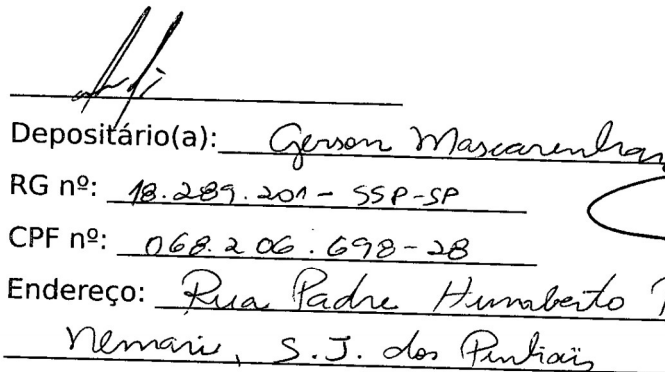 Depositário(a): Gerson Mascarenhas
RG nº: 18.289.201 - SSP-SP
CPF nº: 068.206.698-28
Endereço: Rua Padre Humaberto
S.J. dos Pinhais